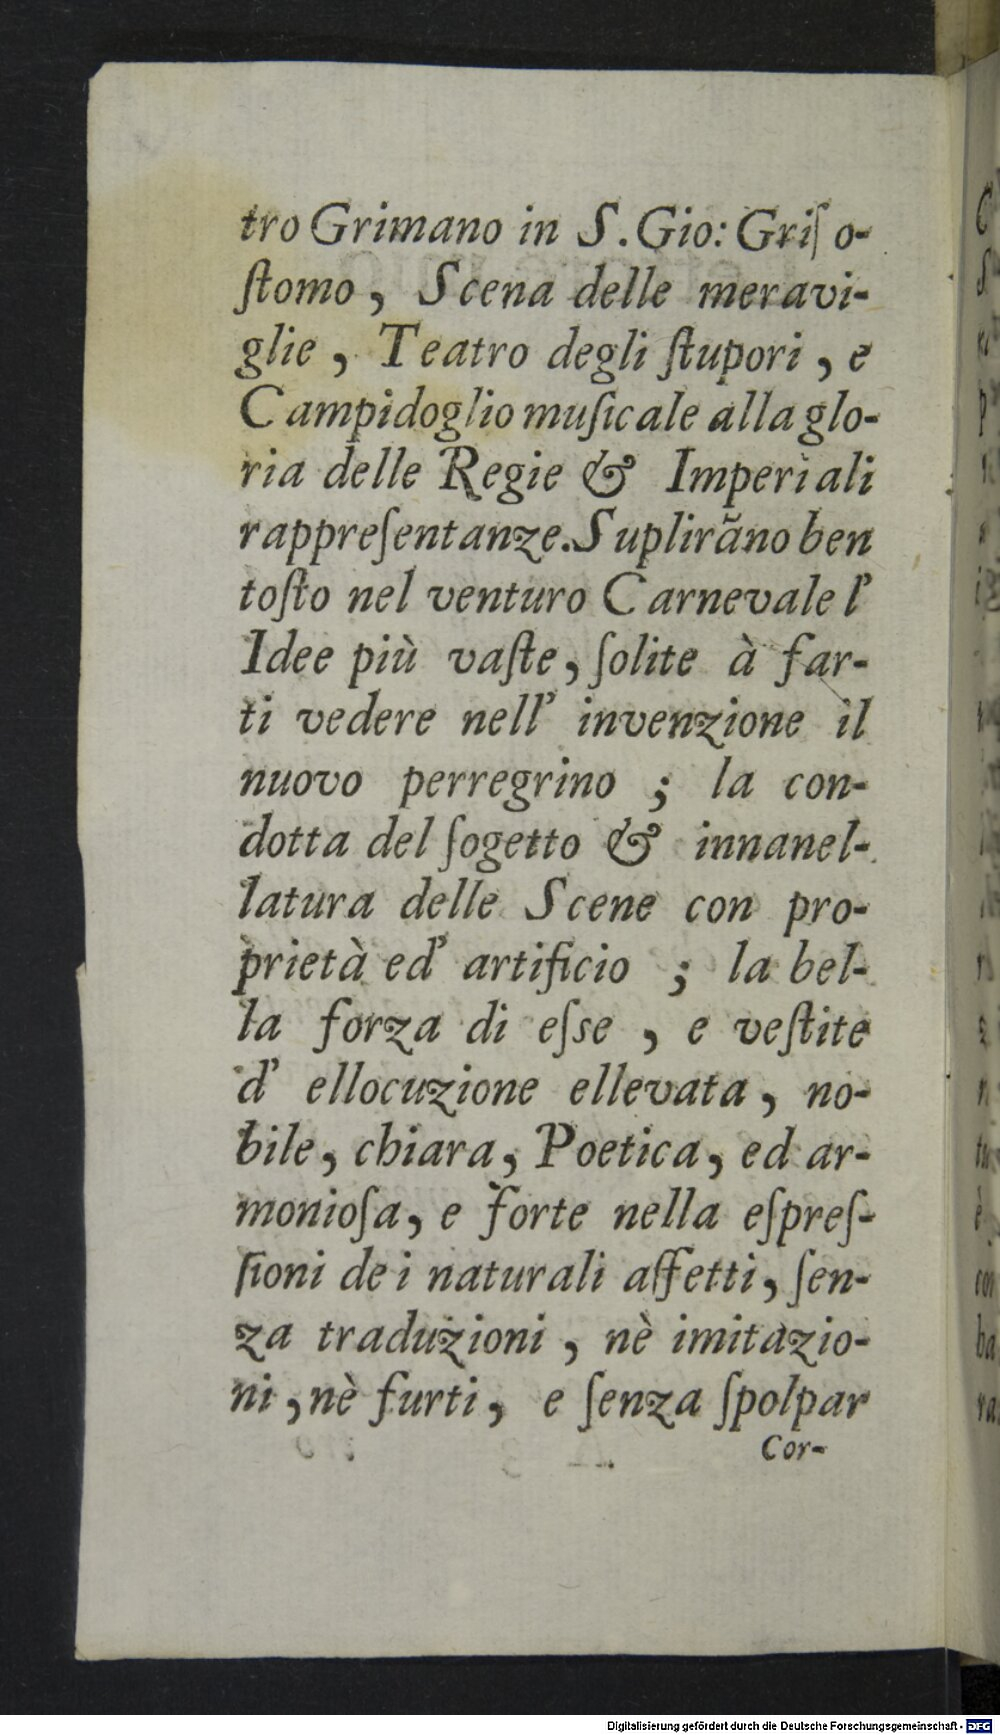 tro Grimano in S. Gio: Griſo-
ſtomo, Scena delle meravi-
glie, Teatro degli ſtupori, e
Campidoglio muſicale alla glo-
ria delle Regie & Imperiali
rappreſentanze. Suplirãno ben
toſto nel venturo Carnevale l'
Idee più vaſte, ſolite à far-
ti vedere nell' invenzione il
nuovo perregrino; la con-
dotta del ſogetto & innanel-
latura delle Scene con pro-
prietà ed' artificio; la bel-
la forza di eſse, e veſtite
d' ellocuzione ellevata, no-
bile, chiara, Poetica, ed ar-
monioſa, e forte nella eſpreſ-
ſioni de i naturali affetti, ſen-
za traduzioni, nè imitazio-
ni, nè furti, e ſenza ſpolpar
Cor-
Digitalisierung gefördert durch die Deutsche Forschungsgemeinschaft - DFG